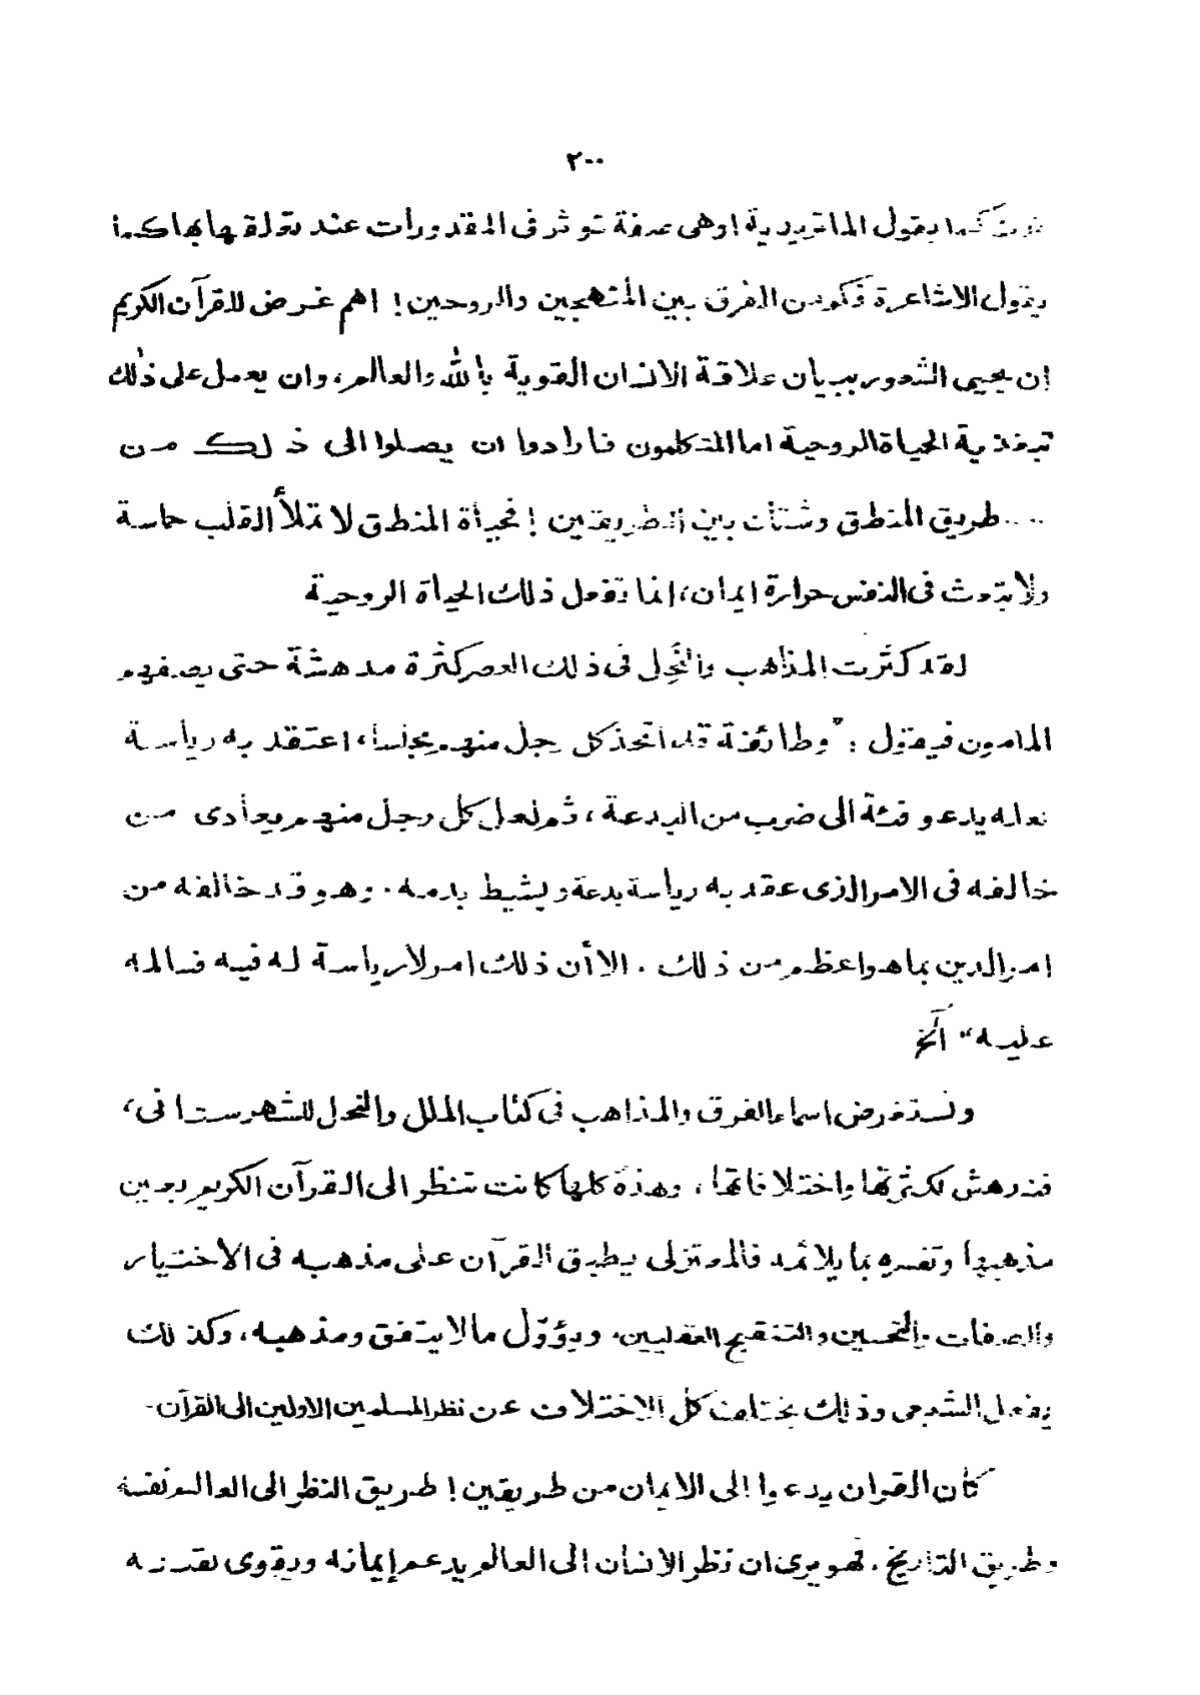 ٢٠٠
كما يقول الماتريدية اوهى صفة توثر فى المقدورات عند تعلقها بها كما
يقول الاشاعرة فكم من الفرق بين المنهجين والروحين! اهم غرض للقرآن الكريم
ان يحيى الشعور ببيان علاقة الانسان القوية بالله والعالم، وان يعمل على ذلك
تبغذية الحياة الروحية اما المتكلمون فارادوا ان يصلوا الى ذلك من
طريق المنطق وشتان بين الطريقين! فحياة المنطق لا تملأ القلب حماسة
ولا تبعث فى النفس حرارة ايمان، انما تفعل ذلك الحياة الروحية
لقد كثرت المذاهب والنحل فى ذلك العصر كثرة مدهشة حتى يصفهم
المامون فيقول : "وطائفة قد اتخذ كل رجل منهم مجلسا، اعتقد به رياسة
لعله يدعو فئة الى ضرب من البدعة، ثم لعل كل رجل منهم يعادى من
خالفه فى الامر الذى عقد به رياسة بدعة ويشيط بدمه. وهو قد خالفه من
امر الدين بما هو اعظم من ذلك . الا أن ذلك امر لا رياسة له فيه فسالمه
عليه" الخ
ونستعرض اسماء الفرق والمذاهب فى كتاب الملل والنحل للشهرستانى،
فندهش لكثرتها واختلافاتها، وهذه كلها كانت تنظر الى القرآن الكريم بعين
مذهبها وتفسره بما يلائمه فالمعتزلى يطبق القرآن على مذهبه فى الاختيار
والصفات والتحسين والتقيح العقليين، ويؤوّل ما لا يتفق ومذهبه، وكذلك
يفعل الشيعى وذلك يختلف كل الاختلاف عن نظر المسلمين الاولين الى القرآن-
كان القران يدعوا الى الايمان من طريقين! طريق النظر الى العالم ونفسه
وطريق التاريخ . فهو يرى ان نظر الانسان الى العالم يدعم إيمانه ويقوى يقينه